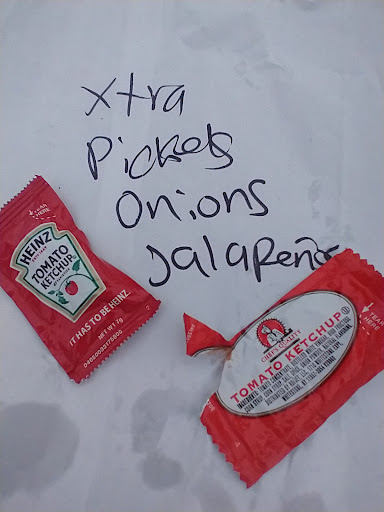 xtra
Pickels
Onions
Jalapeños
TEAR HERE
HEINZ
TOMATO
KETCHUP
IT HAS TO BE HEINZ
NET WT 7g
CHEF'S QUALITY
TOMATO KETCHUP
TEAR HERE